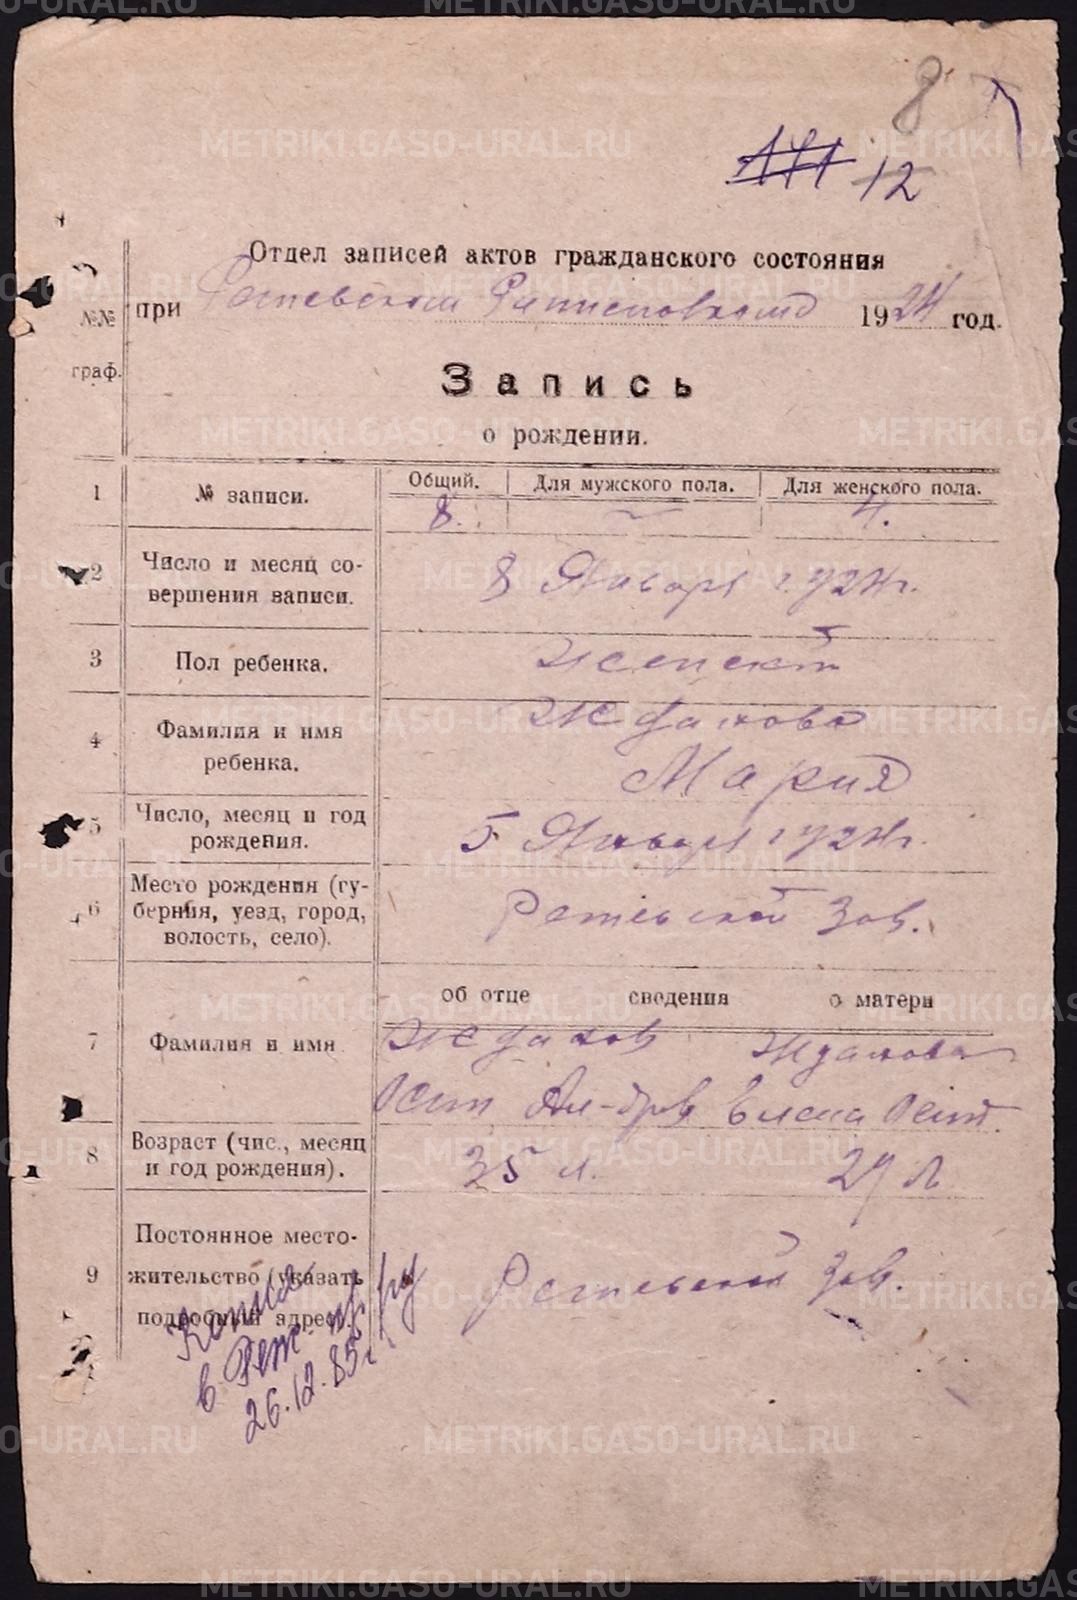 8
12
Отдел записей актов гражданского состояния
№№ при Режевском Райисполкоме 1924 год.
граф.
Запись
о рождении.
1 № записи. Общий. Для мужского пола. Для женского пола.
8. — 4.
2 Число и месяц со-
вершения записи. 8 Января 1924 г.
3 Пол ребенка. Женский
4 Фамилия и имя
ребенка. Ждахова
Мария
5 Число, месяц и год
рождения. 5 Января 1924 г.
6 Место рождения (гу-
берния, уезд, город,
волость, село). Режевской Зав.
об отце сведения о матери
7 Фамилия и имя Ждахов Ждахова
Осип Ал-дров Елена Осип.
8 Возраст (чис., месяц
и год рождения). 35 л. 29 л
Постоянное место-
9 жительство (указать
подробный адрес). Режевской Зав.
Копия
в Реж.
26.12.85 г.
METRIKI.GASO-URAL.RU